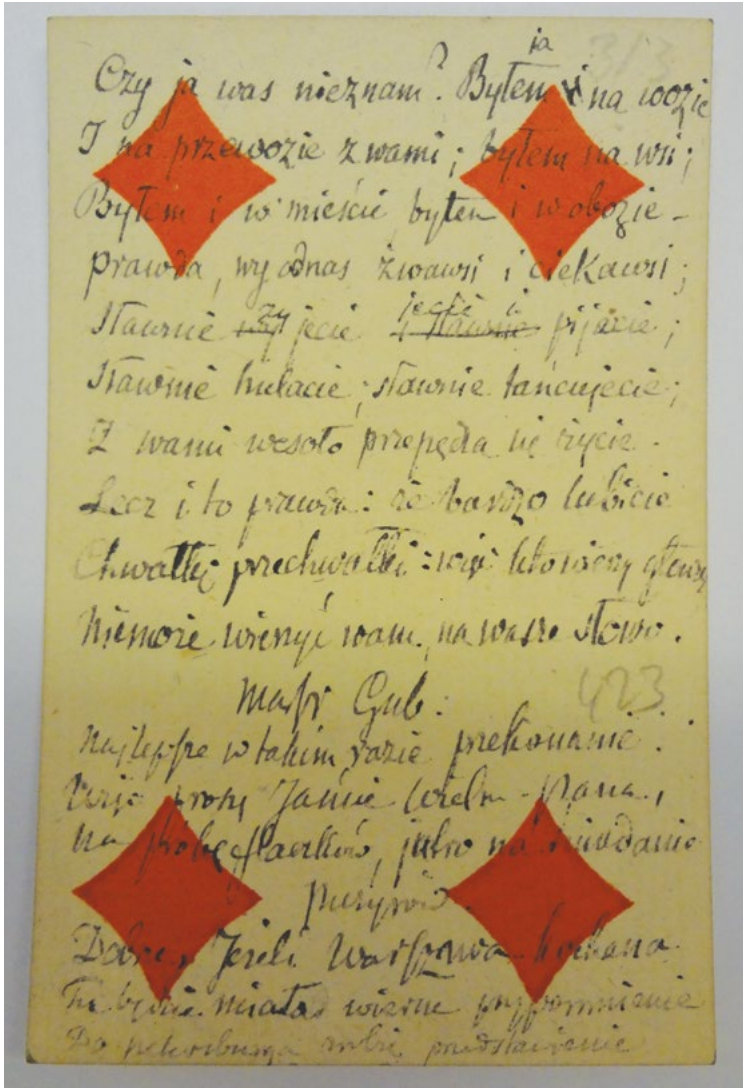 ja
313
Czy ja was nieznam? Byłem i na wozie
I na przewozie z wami; byłem na wsi;
Byłem i w mieście byłem i w obozie -
prawda, wy odnas żwawsi i ciekawsi;
Sławnie żyjecie jecie i pijacie;
Sławnie hulacie; sławnie tańcujecie;
Z wami wesoło przepędza się życie.
Lecz i to prawda: że bardzo lubicie
Chwałki przechwałki: więc głowy
Niemoże wierzyć wam, na wasze słowo.
Marsz Gub:
423
Najlepsze w takim razie przekonanie:
Więc proszę Jaśnie Wielm - Pana,
na próbę flaczków, jutro na śniadanie
Dobrze, Jeżeli Warszawa kochana
Tu będzie miała wierne przypomnienie
Do Petersburga zrobię przedstawienie